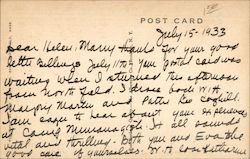 POST CARD
July 15-1933
Dear Helen, Many thanks for your good
letter Billings July 11th your postal card was
waiting when I returned this afternoon
from North field. I drove back with
Marjory Martin and
I am eager to hear about your experience
at Camp It all sounds
vital and thrilling. Both you and Eva take
good care of yourselves.